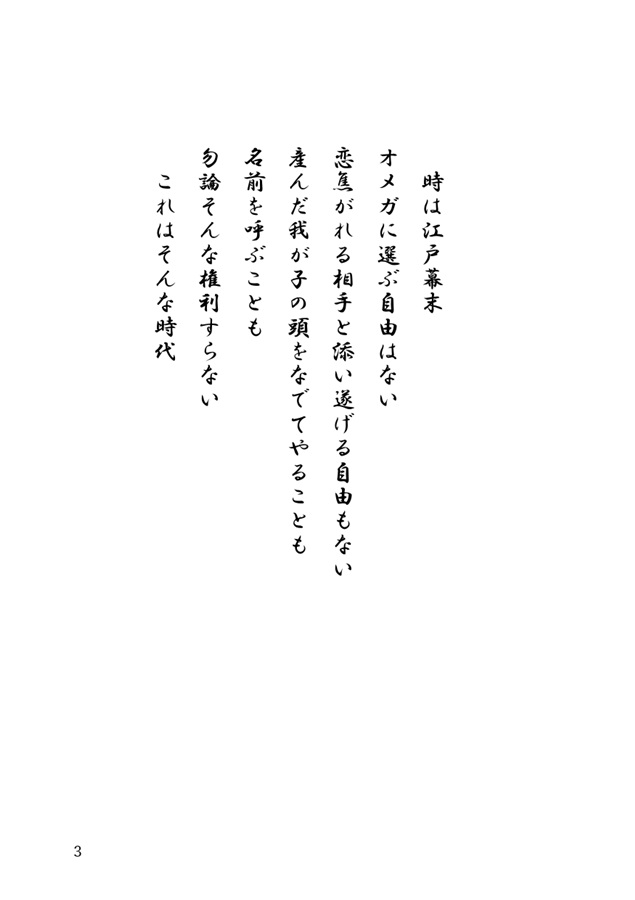 時は江戸幕末
オメガに選ぶ自由はない
恋焦がれる相手と添い遂げる自由もない
産んだ我が子の頭をなでてやることも
名前を呼ぶことも
勿論そんな権利すらない
これはそんな時代
3